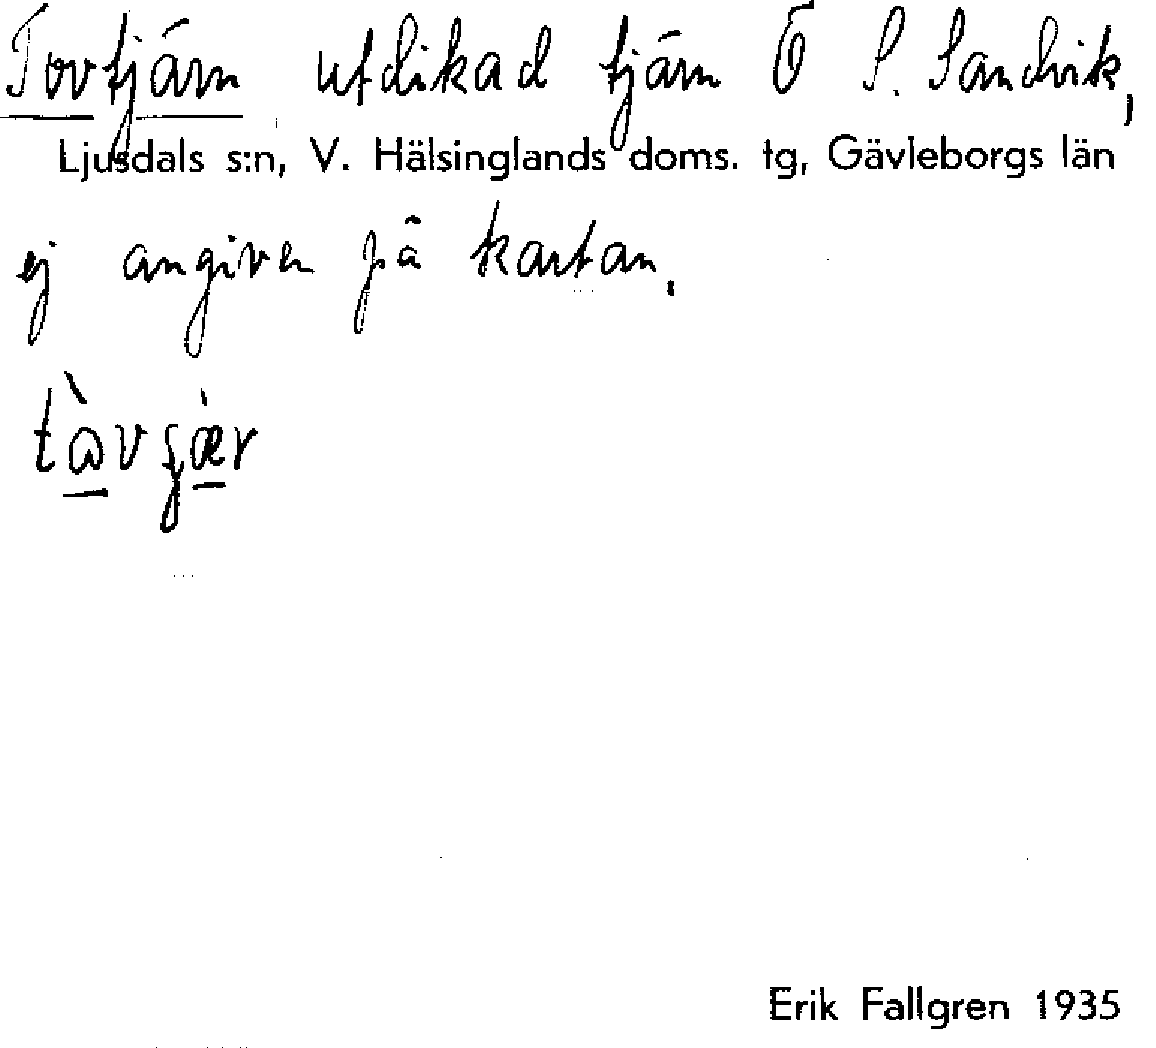 Tovtjärn utdikad tjärn Ö S. Sandvik,
Ljusdals s:n, V. Hälsinglands doms. tg, Gävleborgs län
ej angiven på kartan.
Erik Fallgren 1935